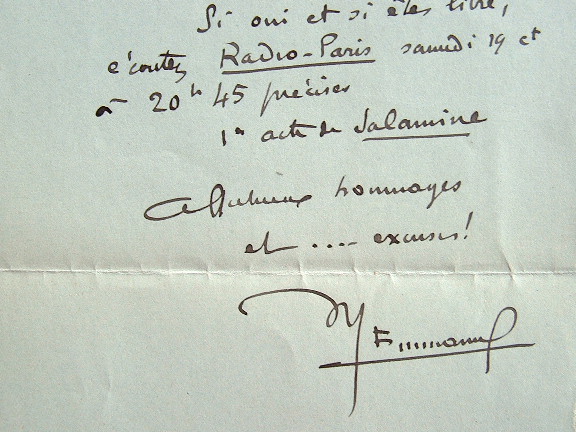 Si oui et si êtes libre,
écoutez Radio-Paris samedi 19 ct
à 20h 45 précises
1er acte de Salamine
Affectueux hommages
et .... excuses!
M Emmanuel